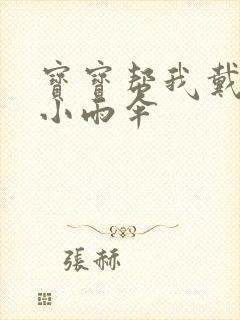 寶寶帮我戴
小雨伞
張赫